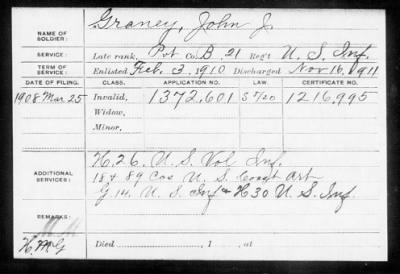 NAME OF SOLDIER: Graney, John J.
SERVICE: Late rank, Pvt Co. B, 21 Reg't U. S. Inf.
TERM OF SERVICE: Enlisted Feb. 3, 1910 Discharged Nov 16, 1911
DATE OF FILING. CLASS. APPLICATION NO. LAW. CERTIFICATE NO.
1908 Mar. 25 Invalid, 1372.601 1216.995
Widow,
Minor,
H. 26. U. S. Vol Inf.
ADDITIONAL SERVICES: 18 + 89 Cos U. S. Coast Art
G 14. U. S. Inf + H 30 U. S. Inf.
REMARKS:
H. McG
Died , 1 , at